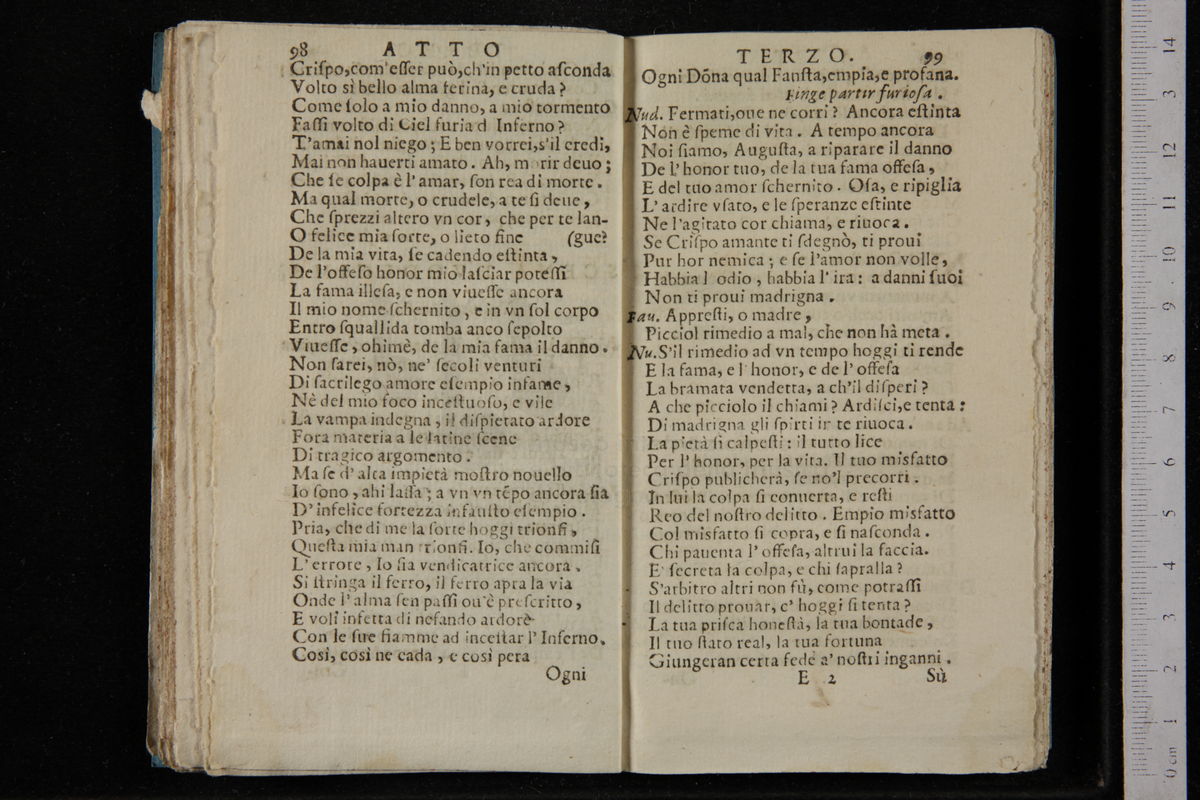 98 ATTO
Criſpo,com'eſſer può,ch'in petto aſconda
Volto sì bello alma ferina, e cruda?
Come ſolo a mio danno, a mio tormento
Faſſi volto di Ciel furia d Inferno?
T'amai nol niego; E ben vorrei,s'il credi,
Mai non hauerti amato. Ah, morir deuo;
Che ſe colpa è l'amar, ſon rea di morte.
Ma qual morte, o crudele, a te ſi deue,
Che ſprezzi altero vn cor, che per te lan-
O felice mia ſorte, o lieto fine (gue?
De la mia vita, ſe cadendo eſtinta,
De l'offeſo honor mio laſciar poteſſi
La fama illeſa, e non viueſſe ancora
Il mio nome ſchernito, e in vn ſol corpo
Entro ſquallida tomba anco ſepolto
Viueſſe, ohimè, de la mia fama il danno.
Non ſarei, nò, ne' ſecoli venturi
Di ſacrilego amore eſempio infame,
Nè del mio foco inceſtuoſo, e vile
La vampa indegna, il diſpietato ardore
Fora materia a le latine ſcene
Di tragico argomento.
Ma ſe d'alta impietà moſtro nouello
Io ſono, ahi laſſa; a vn vn tẽpo ancora ſia
D'infelice fortezza infauſto eſempio.
Pria, che di me la ſorte hoggi trionfi,
Queſta mia man trionfi. Io, che commiſi
L'errore, Io ſia vendicatrice ancora.
Si ſtringa il ferro, il ferro apra la via
Onde l'alma ſen paſſi ou'è preſcritto,
E voli infetta di nefando ardorè
Con le ſue fiamme ad incettar l'Inferno.
Così, così ne cada, e così pera
Ogni
TERZO. 99
Ogni Dõna qual Fauſta,empia,e profana.
Finge partir furioſa.
Nud. Fermati,oue ne corri? Ancora eſtinta
Non è ſpeme di vita. A tempo ancora
Noi ſiamo, Auguſta, a riparare il danno
De l'honor tuo, de la tua fama offeſa,
E del tuo amor ſchernito. Oſa, e ripiglia
L'ardire vſato, e le ſperanze eſtinte
Ne l'agitato cor chiama, e riuoca.
Se Criſpo amante ti ſdegnò, ti proui
Pur hor nemica; e ſe l'amor non volle,
Habbia l odio, habbia l'ira: a danni ſuoi
Non ti proui madrigna.
Fau. Appreſti, o madre,
Picciol rimedio a mal, che non hà meta.
Nu.S'il rimedio ad vn tempo hoggi ti rende
E la fama, e l'honor, e de l'offeſa
La bramata vendetta, a ch'il diſperi?
A che picciolo il chiami? Ardiſci,e tenta:
Di madrigna gli ſpirti in te riuoca.
La pietà ſi calpeſti: il tutto lice
Per l'honor, per la vita. Il tuo misfatto
Criſpo publicherà, ſe no'l precorri.
In lui la colpa ſi conuerta, e reſti
Reo del noſtro delitto. Empio misfatto
Col misfatto ſi copra, e ſi naſconda.
Chi pauenta l'offeſa, altrui la faccia.
E' ſecreta la colpa, e chi ſapralla?
S'arbitro altri non fù, come potraſſi
Il delitto prouar, c'hoggi ſi tenta?
La tua priſca honeſtà, la tua bontade,
Il tuo ſtato real, la tua fortuna
Giungeran certa fede a' noſtri inganni.
E 2 Sù
0 cm 1 2 3 4 5 6 7 8 9 10 11 12 13 14